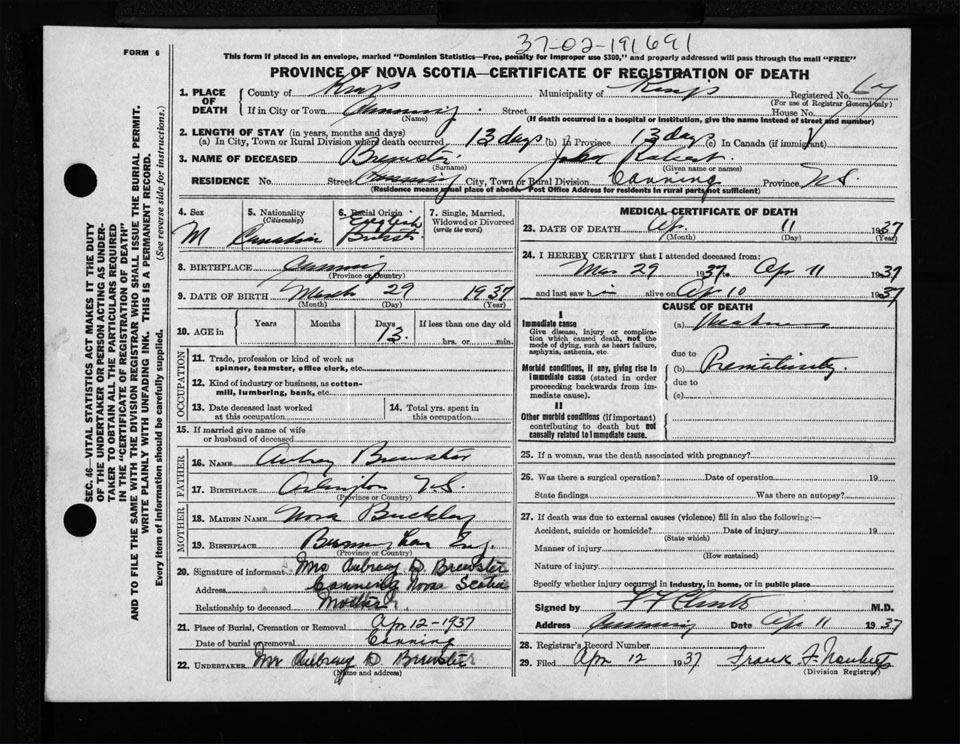 37-02-191691
FORM 6
This form if placed in an envelope, marked "Dominion Statistics—Free, penalty for improper use $300," and properly addressed will pass through the mail "FREE"
PROVINCE OF NOVA SCOTIA—CERTIFICATE OF REGISTRATION OF DEATH
SEC. 46—VITAL STATISTICS ACT MAKES IT THE DUTY
OF THE UNDERTAKER OR PERSON ACTING AS UNDER-
TAKER TO OBTAIN ALL THE PARTICULARS REQUIRED
IN THE "CERTIFICATE OF REGISTRATION OF DEATH"
AND TO FILE THE SAME WITH THE DIVISION REGISTRAR WHO SHALL ISSUE THE BURIAL PERMIT.
WRITE PLAINLY WITH UNFADING INK. THIS IS A PERMANENT RECORD.
Every item of information should be carefully supplied. (See reverse side for instructions.)
1. PLACE OF DEATH County of Kings Municipality of Kings Registered No. 67
(For use of Registrar General only)
If in City or Town Canning Street House No.
(Name) (If death occurred in a hospital or institution, give the name instead of street and number)
2. LENGTH OF STAY (in years, months and days)
(a) In City, Town or Rural Division where death occurred 13 days (b) In Province 13 days (c) In Canada (if immigrant)
3. NAME OF DECEASED Brewster John Robert
(Surname) (Given name or names)
RESIDENCE No. Street Canning City, Town or Rural Division Canning Province N.S.
(Residence means usual place of abode. Post Office Address for residents in rural parts not sufficient)
4. Sex M
5. Nationality (Citizenship) Canadian
6. Racial Origin English
7. Single, Married, Widowed or Divorced (write the word)
8. BIRTHPLACE Canning
(Province or Country)
9. DATE OF BIRTH March 29 1937
(Month) (Day) (Year)
10. AGE in Years Months Days 13 If less than one day old
hrs. or min.
OCCUPATION
11. Trade, profession or kind of work as
spinner, teamster, office clerk, etc.
12. Kind of industry or business, as cotton-
mill, lumbering, bank, etc.
13. Date deceased last worked
at this occupation
14. Total yrs. spent in
this occupation
15. If married give name of wife
or husband of deceased
FATHER
16. NAME Aubrey Brewster
17. BIRTHPLACE Arlington N.S.
(Province or Country)
MOTHER
18. MAIDEN NAME Nora Buckley
19. BIRTHPLACE Birmingham Eng.
(Province or Country)
20. Signature of informant Mrs Aubrey D. Brewster
Address Canning Nova Scotia
Relationship to deceased Mother
21. Place of Burial, Cremation or Removal Apr 12-1937
Date of burial or removal Canning
22. UNDERTAKER Mr Aubrey D. Brewster
(Name and address)
MEDICAL CERTIFICATE OF DEATH
23. DATE OF DEATH Ap. 11 1937
(Month) (Day) (Year)
24. I HEREBY CERTIFY that I attended deceased from:
Mar 29 1937 to Apr 11 1937
and last saw h i alive on Ap 10 1937
CAUSE OF DEATH
I
Immediate cause
Give disease, injury or complica-
tion which caused death, not the
mode of dying, such as heart failure,
asphyxia, asthenia, etc.
(a)
due to
Morbid conditions, if any, giving rise to
immediate cause (stated in order
proceeding backwards from im-
mediate cause).
(b) Prematurity.
due to
(c)
II
Other morbid conditions (if important)
contributing to death but not
causally related to immediate cause.
25. If a woman, was the death associated with pregnancy?
26. Was there a surgical operation? Date of operation 19
State findings Was there an autopsy?
27. If death was due to external causes (violence) fill in also the following:—
Accident, suicide or homicide? Date of injury 19
(State which)
Manner of injury
(How sustained)
Nature of injury
Specify whether injury occurred in industry, in home, or in public place
Signed by M.D.
Address Canning Date Apr 11 1937
28. Registrar's Record Number
29. Filed Apr 12 1937 Frank F.
(Division Registrar)